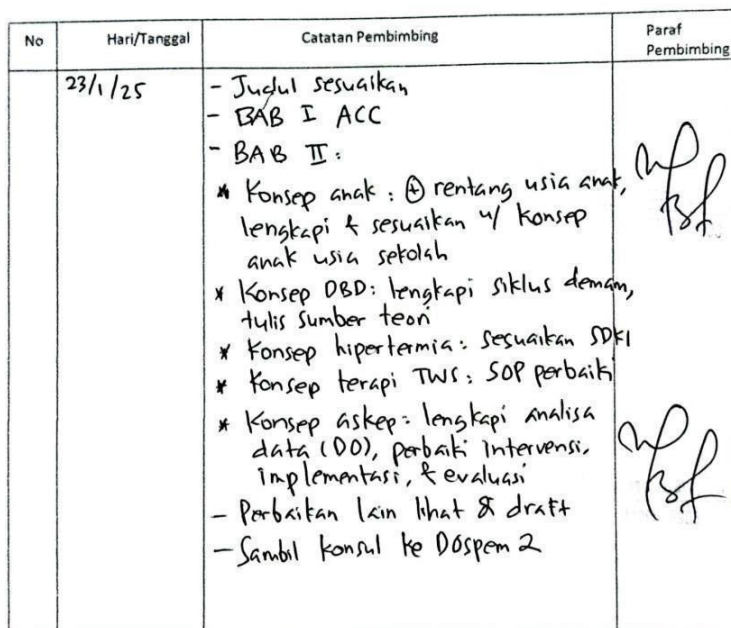 No Hari/Tanggal Catatan Pembimbing Paraf
Pembimbing
23/1/25 - Judul sesuaikan
- BAB I ACC
- BAB II :
* Konsep anak : ⊕ rentang usia anak,
lengkapi & sesuaikan w/ konsep
anak usia sekolah
* Konsep DBD: lengkapi siklus demam,
tulis sumber teori
* Konsep hipertermia: sesuaikan SDKI
* Konsep terapi TWS: SOP perbaiki
* Konsep askep: lengkapi analisa
data (DO), perbaiki intervensi,
implementasi, & evaluasi
- Perbaikan lain lihat draft
- Sambil konsul ke Dospem 2